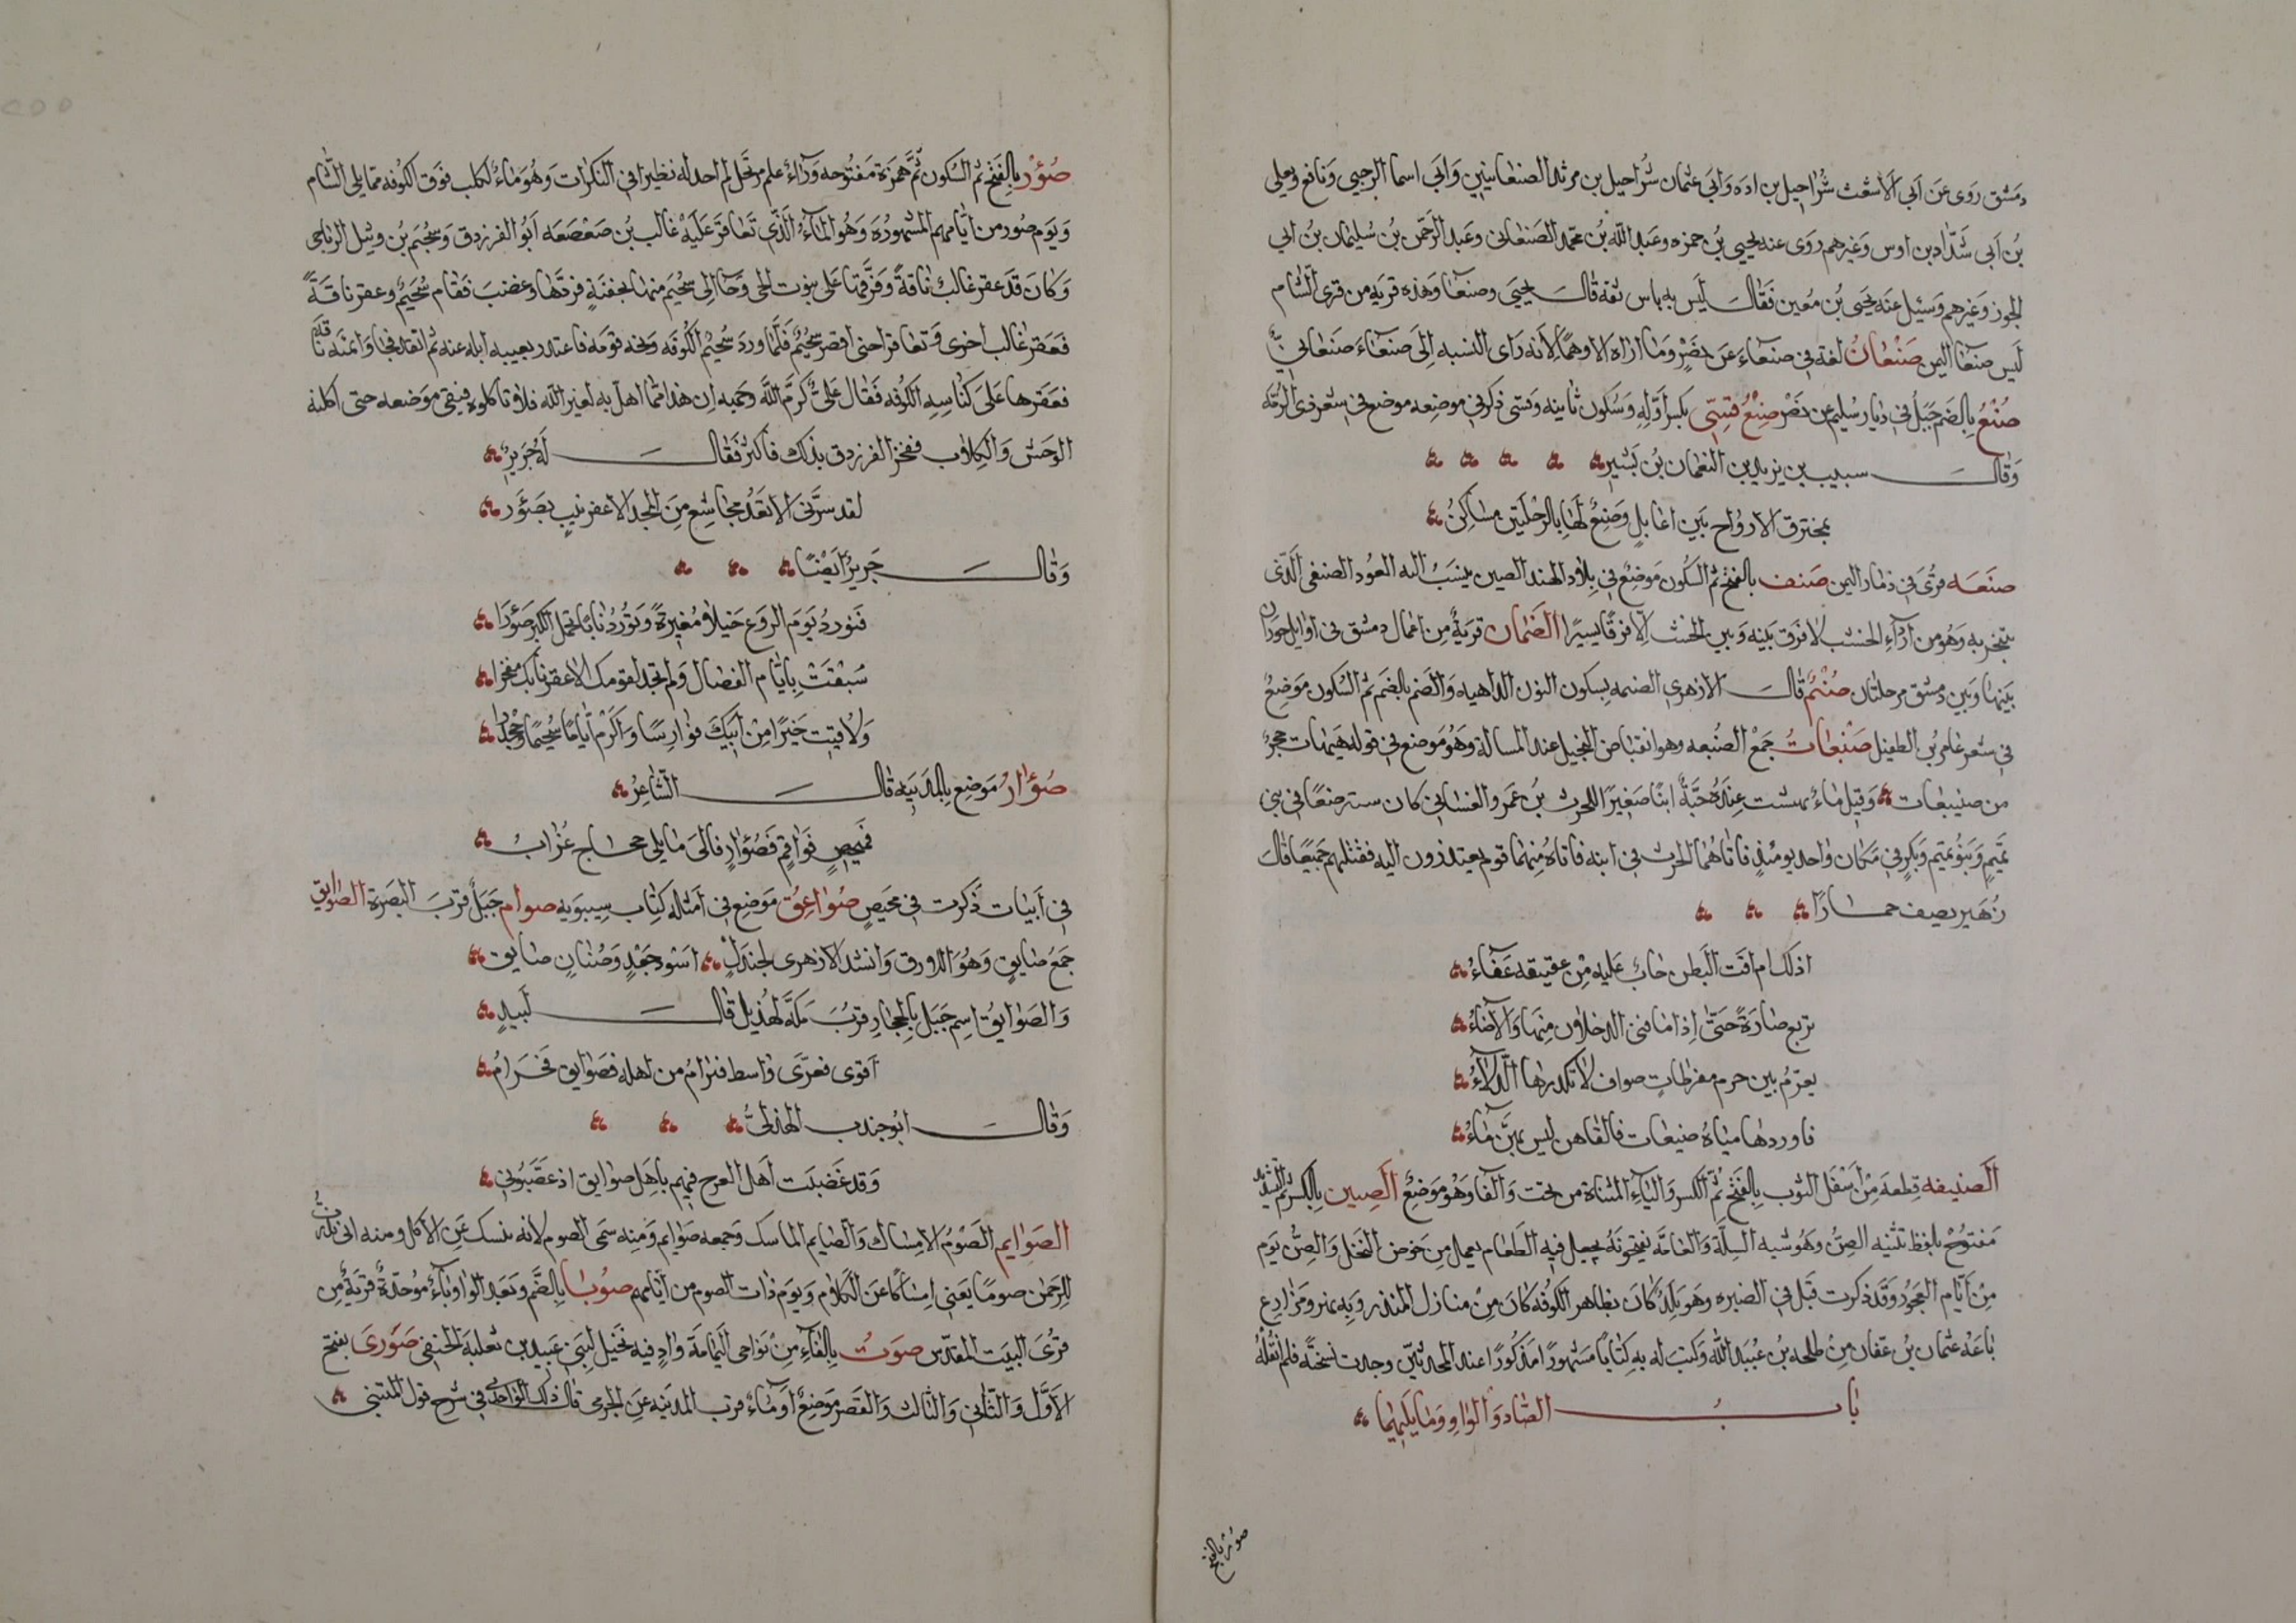 دمشق روى عن ابي الاشعث شراحيل بن اده وابي عثمان شراحيل بن مرثد الصنعانيين وابي اسما الرحبي ونافع ويعلى
بن ابي شداد بن اوس وغيرهم روى عنه يحيى بن حمزه وعبد الله بن محمد الصنعاني وعبد الرحمن بن سليمان بن ابي
الجون وغيرهم وسئل عنه يحيى بن معين فقال ليس به باس ثقه قال يحيى وصنعا وهذه قريه من قرى الشام
ليس صنعا اليمن صنعان لغه في صنعاء عن نصر وما اراه الا وهما لانه راى النسبه الى صنعاء صنعاني
صنع بالضم جبل في ديار سليم عن نصر صنع قسى بكسر اوله وسكون ثانيه وقسى ذكر في موضعه موضع في شعر ذى الرمه
وقال سبيب بن يزيد بن النعمان بن بشير
بمخترق الارواح بين اعابل وصنع لها بالرحلتين مساكن
صنعه قرى في ذمار اليمن صنف بالفتح ثم السكون موضع في بلاد الهند الصين ينسب اليه العود الصنفى الذى
يتبخر به وهو من اردء الخشب لا فرق بينه وبين الخشب الا فرقا يسيرا الصنمان قرية من اعمال دمشق في اوايل حوران
بينها وبين دمشق مرحلتان صنم قال الازهري الصنمه بسكون النون الداهيه والصنم بالضم ثم السكون موضع
في شعر عامر بن الطفيل صنبعات جمع الصنبعه وهو انقباض البخيل عند المسالة وهو موضع في قوله هيهات حجر
من صنيبعات وقيل ماء نهشت عنده حية ابنا صغيرا للحرث بن عمرو الغساني كان مسترضعا في بني
تميم وبنو تميم وبكر في مكان واحد يومئذ فاتاهما الحرث في ابنه فاتاه منهما قوم يعتذرون اليه فقتلهم جميعا قال
زهير يصف حمارا
اذلك ام اقب البطن جاب عليه من عقيقه عفاء
تربع صارة حتى اذا ما فنى الدحلان منها والاضاء
يعرم بين خرم مفرطات صواف لا تكدرها الدلاء
فاوردها مياه صنيبعات فالفاهن ليس بهن ماء
الصنيفه قطعه من اسفل الثوب بالفتح ثم الكسر والياء المثناة من تحت والفا وهو موضع الصنين بالكسر ثم التشديد
مفتوح بلفظ تثنيه الصن وهو شبه السلة والعامه يفتحونه يجعل فيه الطعام يعمل من خوص النخل والصن يوم
من ايام العجوز وقد ذكرت قبل في الصنبره وهو بلد كان بظاهر الكوفه كان من منازل المنذر وبه نهر ومزارع
باعه عثمان بن عفان من طلحه بن عبيد الله وكتب له به كتابا مشهورا مذكورا عند المحدثين وجدت نسخة فلم انقله
باب الصاد والواو وما يليهما
صوئر بالفتح
صوئر بالفتح ثم السكون ثم همزة مفتوحه وراء علم مرتجل لم اجد له نظيرا في النكرات وهو ماء لكلب فوق الكوفه مما يلى الشام
ويوم صور من ايامهم المشهوره وهو الماء الذي تعاقر عليه غالب بن صعصعه ابو الفرزدق وسحيم بن وثيل الرياحى
وكان قد عقر غالب ناقة وفرقها على بيوت الحى وجا الى سحيم منها بجفنة فردها وغضب فقام سحيم وعقر ناقة
فعقر غالب اخرى وتعاقرا حتى اقصر سحيم فلما ورد سحيم الكوفه وبخه قومه فاعتذر بغيبه ابله عنه ثم انفذ فجاوا بمئه ناقة
فعقرها على كناسه الكوفه فقال علي كرم الله وجهه ان هذا مما اهل به لغير الله فلا تاكلوه فبقى موضعه حتى اكلته
الوحش والكلاب ففخر الفرزدق بذلك فاكثر فقال له جرير
لقد سرنى الا تعد مجاشع من المجد الا عقر نيب بصوئر
وقال جرير ايضا
فنورد يوم الروع خيلا مغيرة وتورد نابا تحمل الكير صوءرا
سبقت بايام الفضال ولم تجد لقومك الا عقر نابك مفخرا
ولاقيت خيرا من ابيك فوارسا واكرم اياما سحيما وجحدرا
صوار موضع بالمدينه قال الشاعر
فمحيص فواقم فصوار فالى ما يلى حجاج غراب
في ابيات ذكرت في محيص صواعق موضع في امثله كتاب سيبويه صوام جبل قرب البصرة الصوايق
جمع صايق وهو اللازق وانشد الازهرى لجندل اسود جعد وصنان صايق
والصوايق اسم جبل بالحجاز قرب مكة لهذيل قال لبيد
اقوى فعرى واسط فبرام من اهله فصوايق فخرام
وقال ابو جندب الهذلى
وقد غضبت اهل العرج فيهم باهل صوايق اذ عصبونى
الصوايم الصوم الامساك والصايم الماسك وجمعه صوايم ومنه سمى الصوم لانه يمسك عن الاكل ومنه انى نذرت
للرحمن صوما يعني امساكا عن الكلام ويوم ذات الصوم من ايامهم صوبا بالضم وبعد الواو باء موحدة قرية من
قرى البيت المقدس صوت بالفاء من نواحى اليمامة واد فيه نخيل لبني عبيد بن ثعلبة الحنفى صورى بفتح
الاول والثاني والثالث والقصر موضع او ماء قرب المدينه عن الجرمى قال ذلك الواحدى في شرح قول المتنبي